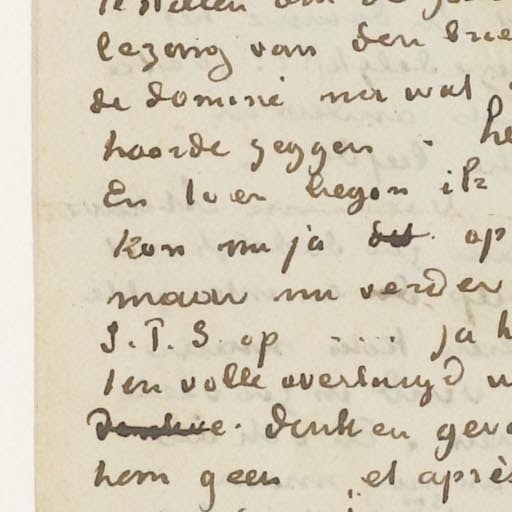 te stellen om de
lezing van den brie
de dominé nu wat
hoorde zeggen. he
En toen begon ik
kon nu ja dit op
maar nu verder
J. T. S. op .... ja h
ten volle overtuigd
denken gev
hem geen "et après